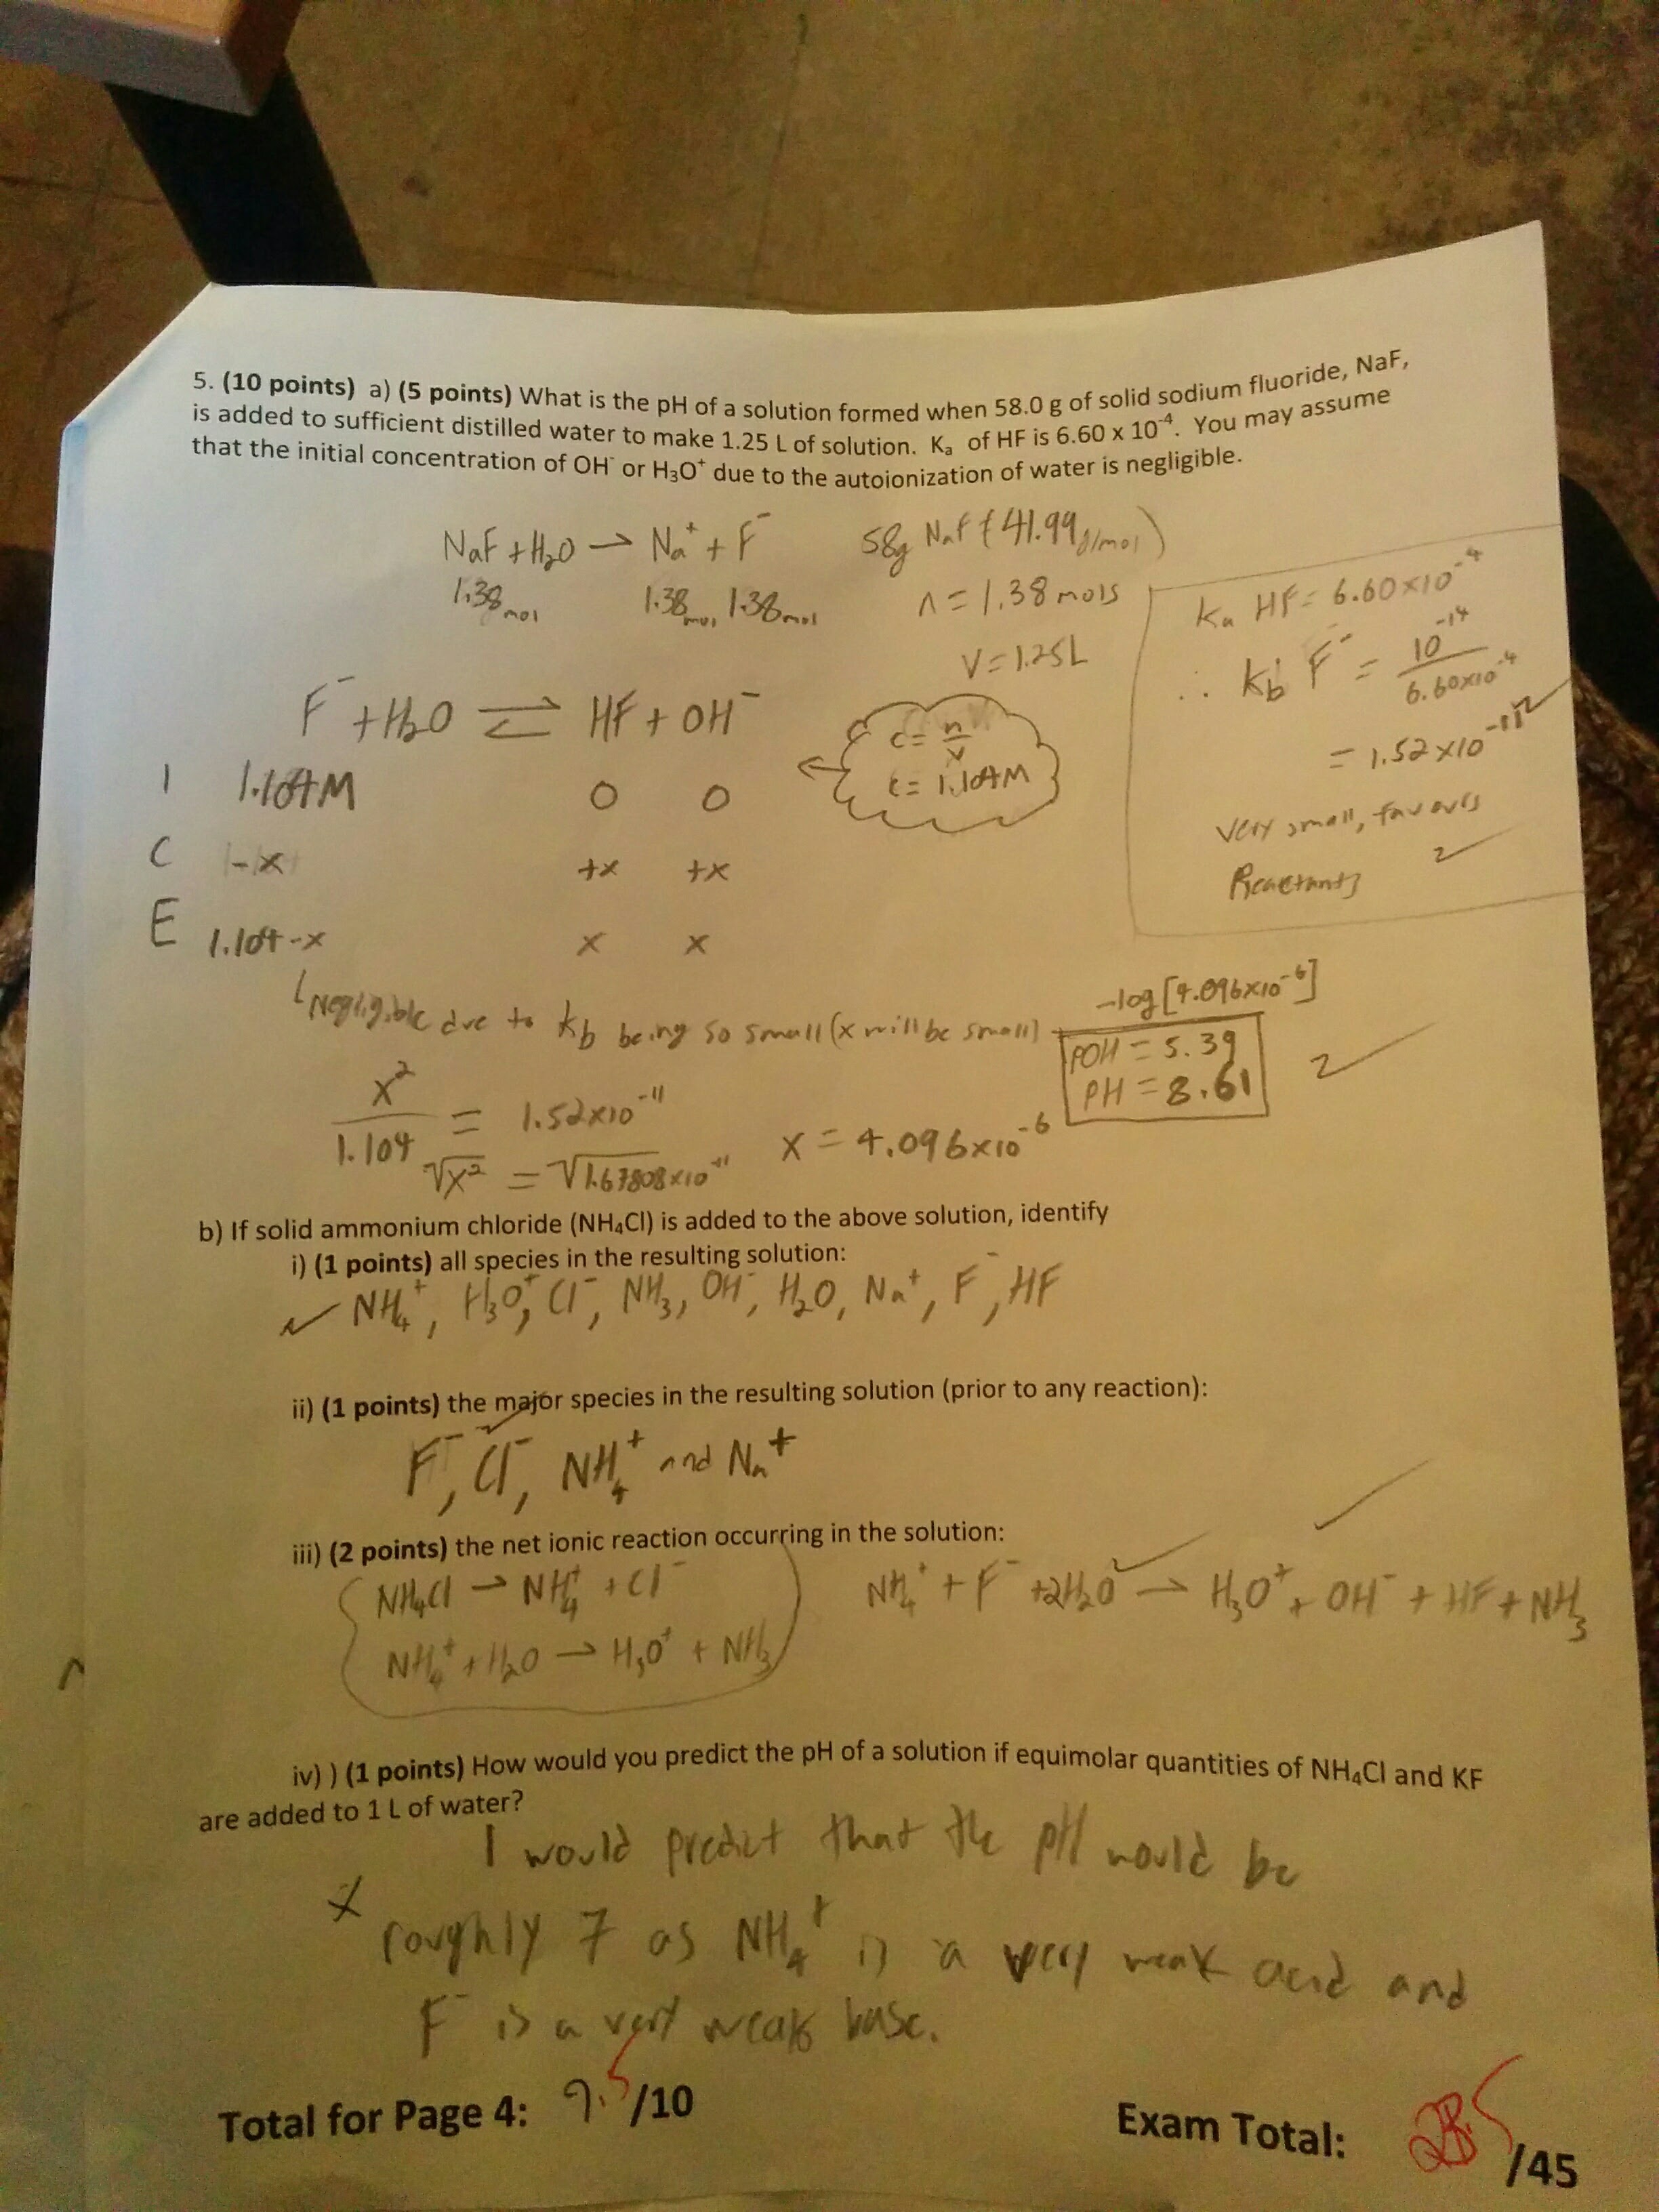 5. (10 points) a) (5 points) What is the pH of a solution formed when 58.0 g of solid sodium fluoride, NaF,
is added to sufficient distilled water to make 1.25 L of solution. Kₐ of HF is 6.60 x 10⁻⁴. You may assume
that the initial concentration of OH⁻ or H₃O⁺ due to the autoionization of water is negligible.
NaF + H₂O → Na⁺ + F⁻
1.38 mol 1.38 mol 1.38 mol
58g NaF (41.99 g/mol)
n = 1.38 mols
V = 1.25L
Ka HF = 6.60x10⁻⁴
∴ Kb F⁻ = 10⁻¹⁴ / 6.60x10⁻⁴
= 1.52 x10⁻¹¹
very small, favours
Reactants
2
F⁻ + H₂O ⇌ HF + OH⁻
c = n/v
c = 1.104M
I 1.104M 0 0
C -x +x +x
E 1.104-x x x
Negligible due to Kb being so small (x will be small)
-log[4.096x10⁻⁶]
pOH = 5.39
pH = 8.61
2
x²/1.104 = 1.52x10⁻¹¹
√x² = √1.67808x10⁻¹¹
x = 4.096x10⁻⁶
b) If solid ammonium chloride (NH₄Cl) is added to the above solution, identify
i) (1 points) all species in the resulting solution:
NH₄⁺, H₃O⁺, Cl⁻, NH₃, OH⁻, H₂O, Na⁺, F⁻, HF
ii) (1 points) the major species in the resulting solution (prior to any reaction):
F⁻, Cl⁻, NH₄⁺ and Na⁺
iii) (2 points) the net ionic reaction occurring in the solution:
NH₄Cl → NH₄⁺ + Cl⁻
NH₄⁺ + H₂O → H₃O⁺ + NH₃
NH₄⁺ + F⁻ + 2H₂O → H₃O⁺ + OH⁻ + HF + NH₃
iv) ) (1 points) How would you predict the pH of a solution if equimolar quantities of NH₄Cl and KF
are added to 1 L of water?
I would predict that the pH would be
roughly 7 as NH₄⁺ is a very weak acid and
F⁻ is a very weak base.
Total for Page 4: 9.5/10
Exam Total: /45